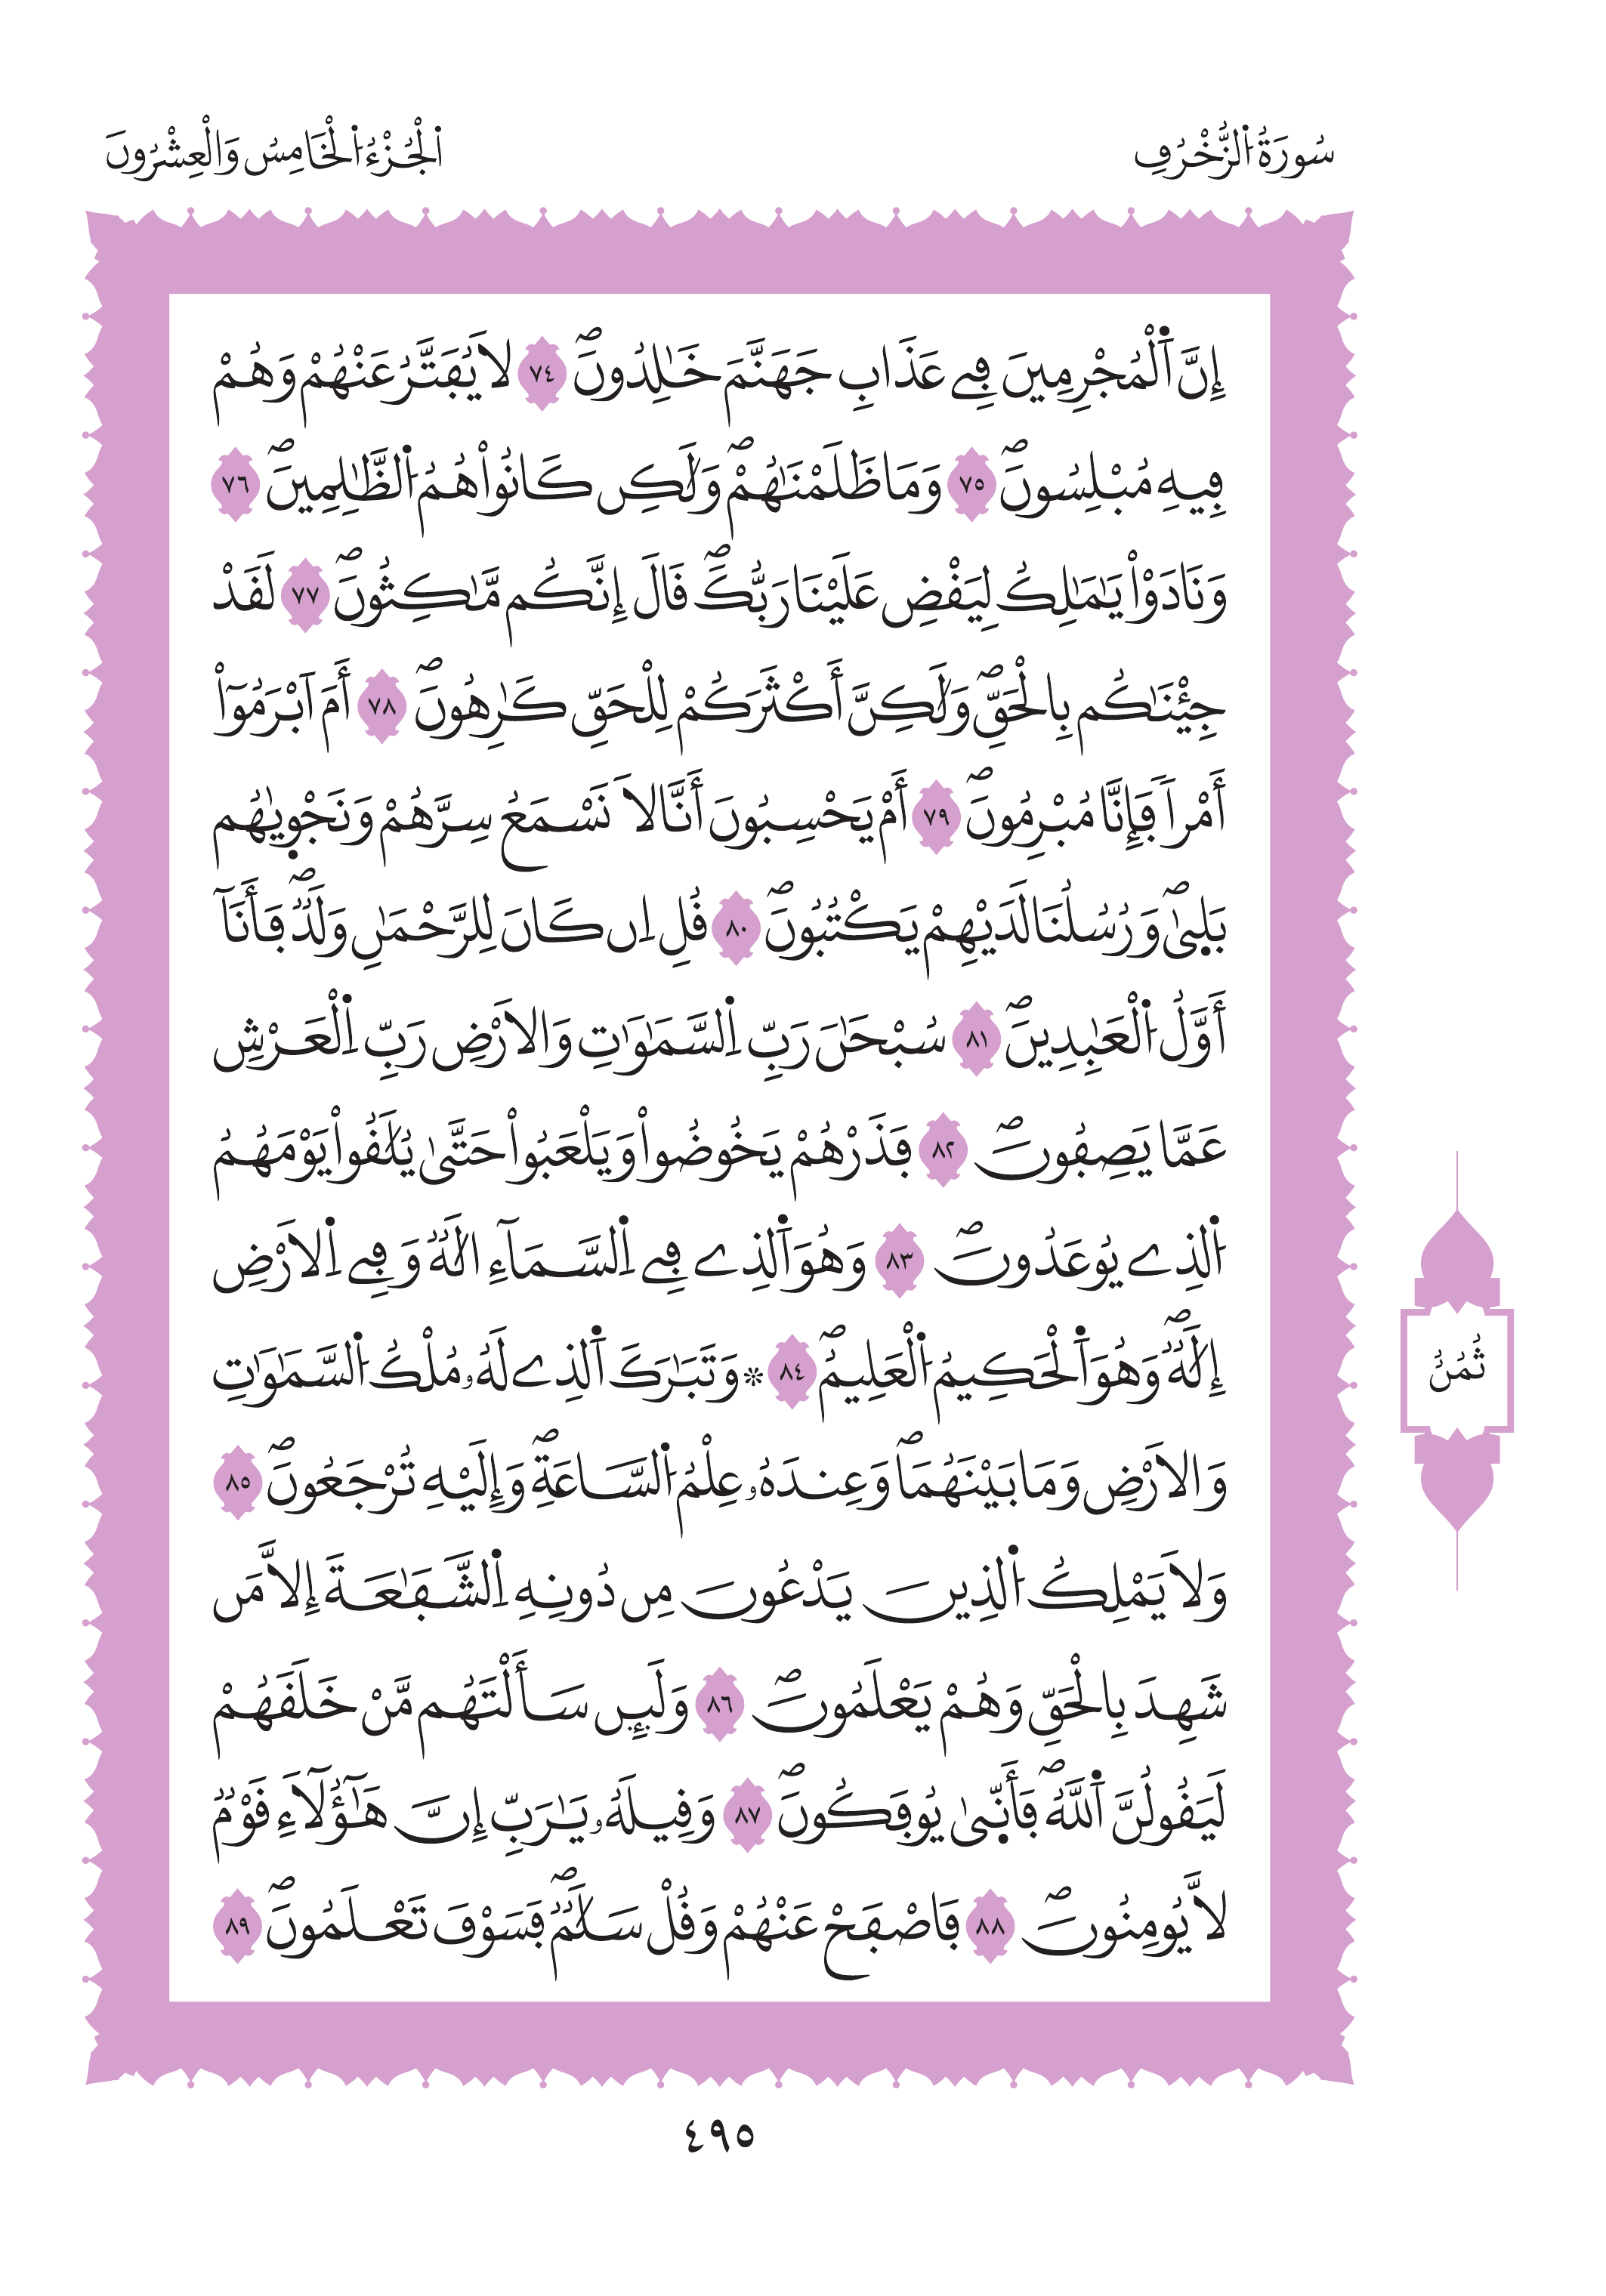 سُورَةُ اُلزُّخْرُفِ
اُلْجُزْءُ اُلْخَامِسُ وَالْعِشْرُونَ
إِنَّ اَ۬لْمُجْرِمِينَ فِے عَذَابِ جَهَنَّمَ خَٰلِدُونَۖ ٧٤ لَا يُفَتَّرُ عَنْهُمْ وَهُمْ
فِيهِ مُبْلِسُونَۖ ٧٥ وَمَا ظَلَمْنَٰهُمْۖ وَلَٰكِن كَانُواْ هُمُ اُ۬لظَّٰلِمِينَۖ ٧٦
وَنَادَوْاْ يَٰمَٰلِكُ لِيَقْضِ عَلَيْنَا رَبُّكَۖ قَالَ إِنَّكُم مَّٰكِثُونَۖ ٧٧ لَقَدْ
جِئْنَٰكُم بِالْحَقِّۖ وَلَٰكِنَّ أَكْثَرَكُمْ لِلْحَقِّ كَٰرِهُونَۖ ٧٨ أَمَ اَبْرَمُوٓاْ
أَمْراٗ فَإِنَّا مُبْرِمُونَۖ ٧٩ أَمْ يَحْسِبُونَ أَنَّا لَا نَسْمَعُ سِرَّهُمْ وَنَجْو۪يٰهُم
بَل۪يٰۖ وَرُسُلُنَا لَدَيْهِمْ يَكْتُبُونَۖ ٨٠ قُلِ اِن كَانَ لِلرَّحْمَٰنِ وَلَدٞۖ فَأَنَآ
أَوَّلُ اُ۬لْعَٰبِدِينَۖ ٨١ سُبْحَٰنَ رَبِّ اِ۬لسَّمَٰوَٰتِ وَالَارْضِ رَبِّ اِ۬لْعَرْشِ
عَمَّا يَصِفُونَۖ ٨٢ فَذَرْهُمْ يَخُوضُواْ وَيَلْعَبُواْ حَتَّىٰ يُلَٰقُواْ يَوْمَهُمُ
اُ۬لذِے يُوعَدُونَۖ ٨٣ وَهُوَ اَ۬لذِے فِے اِ۬لسَّمَآءِ اِلَٰهٞ وَفِے اِ۬لَارْضِ
إِلَٰهٞۖ وَهُوَ اَ۬لْحَكِيمُ اُ۬لْعَلِيمُۖ ٨٤ ۞ وَتَبَٰرَكَ اَ۬لذِے لَهُۥ مُلْكُ اُ۬لسَّمَٰوَٰتِ
وَالَارْضِ وَمَا بَيْنَهُمَاۖ وَعِندَهُۥ عِلْمُ اُ۬لسَّاعَةِۖ وَإِلَيْهِ تُرْجَعُونَۖ ٨٥
وَلَا يَمْلِكُ اُ۬لذِينَ يَدْعُونَ مِن دُونِهِ اِ۬لشَّفَٰعَةَ إِلَّا مَن
شَهِدَ بِالْحَقِّ وَهُمْ يَعْلَمُونَۖ ٨٦ وَلَئِن سَأَلْتَهُم مَّنْ خَلَقَهُمْ
لَيَقُولُنَّ اَ۬للَّهُۖ فَأَنّ۪يٰ يُوفَكُونَۖ ٨٧ وَقِيلَهُۥ يَٰرَبِّ إِنَّ هَٰٓؤُلَآءِ قَوْمٞ
لَّا يُومِنُونَۖ ٨٨ فَاصْفَحْ عَنْهُمْ وَقُلْ سَلَٰمٞۖ فَسَوْفَ تَعْلَمُونَۖ ٨٩
ثُمُنٌ
٤٩٥